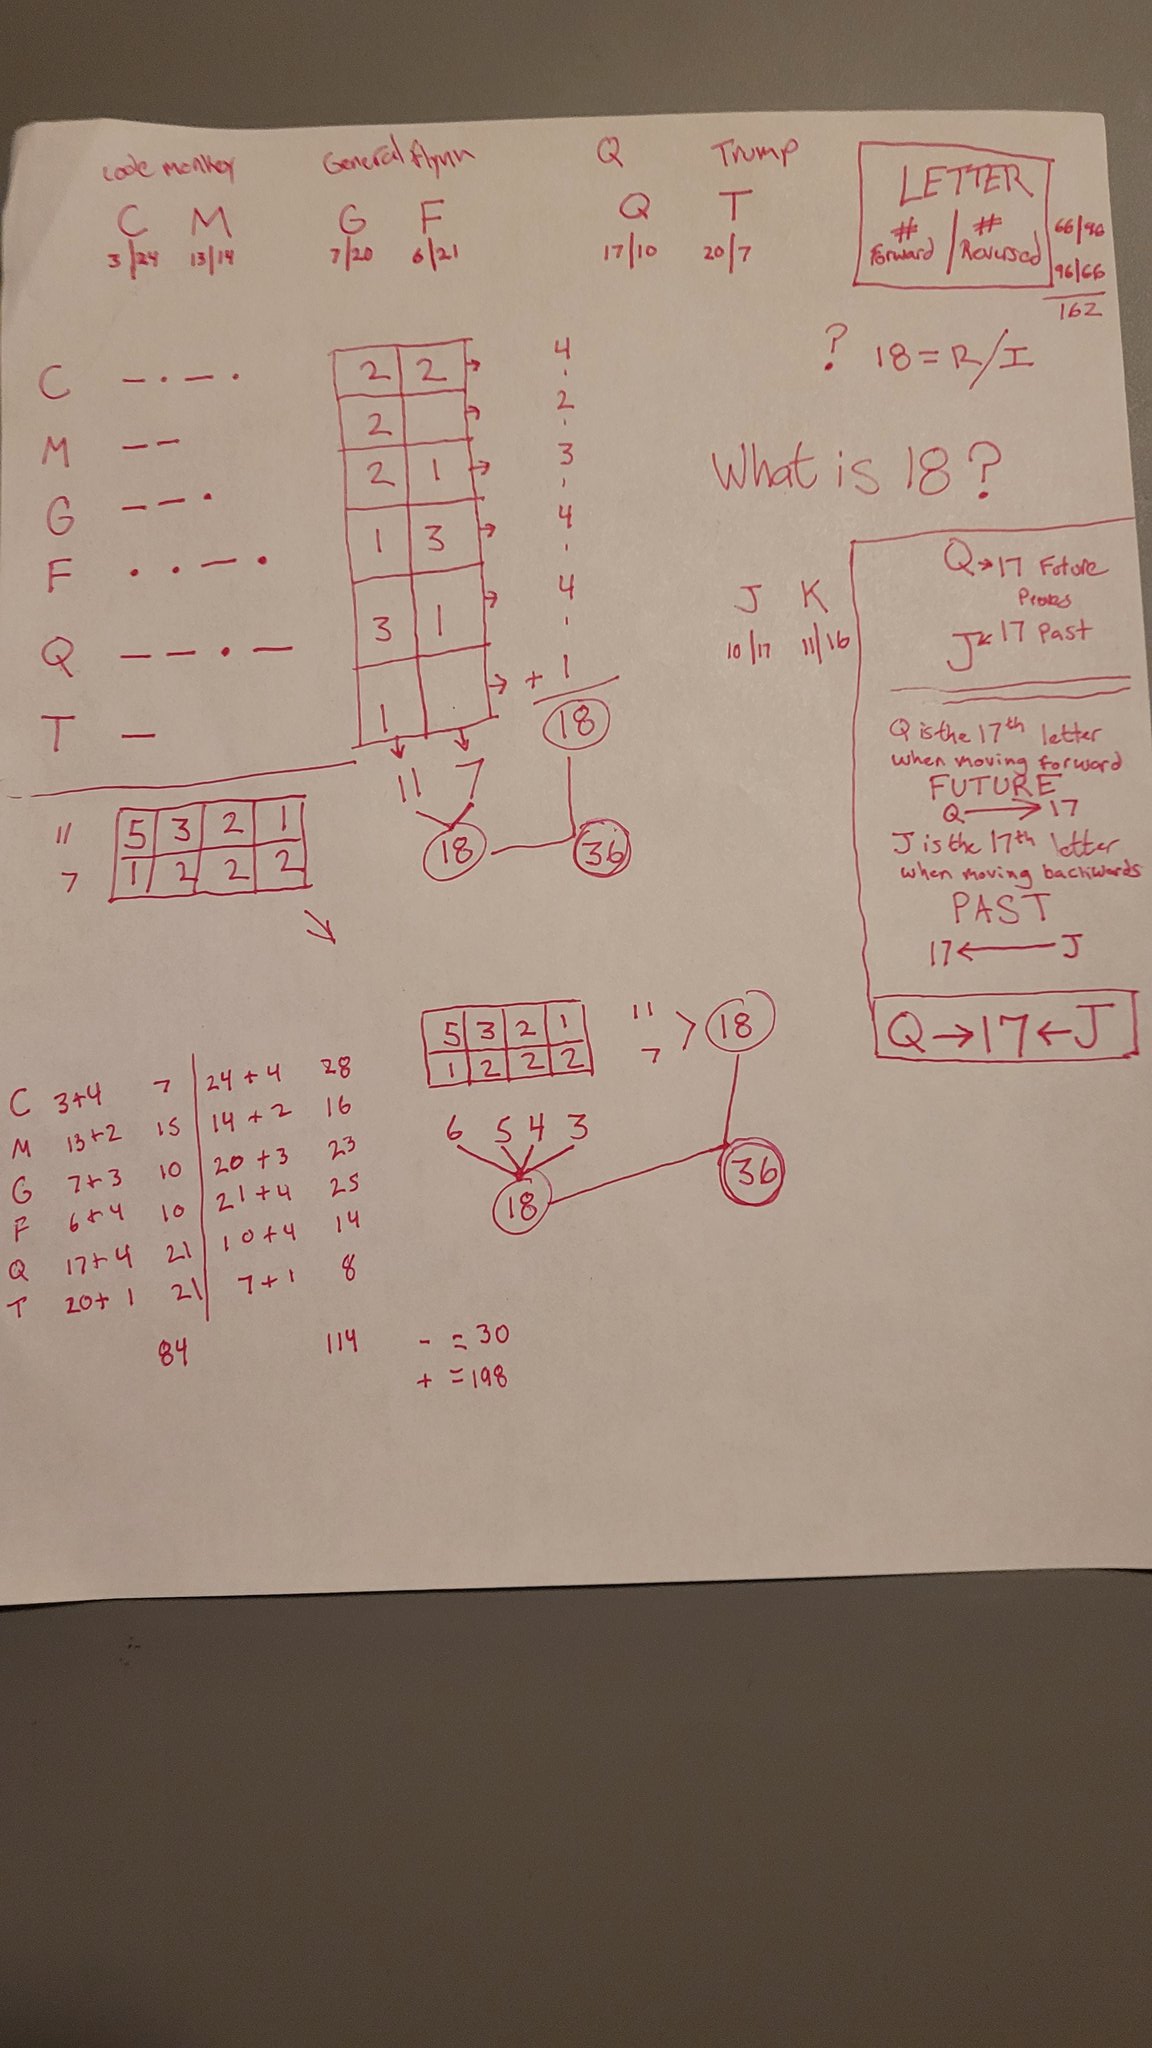 Code monkey General Flynn Q Trump
C M G F Q T
3/24 13/14 7/20 6/21 17/10 20/7
LETTER
# Forward / # Reversed
66/96
96/66
162
? 18 = R/I
What is 18?
C — · — · 2 2 → 4
M — — 2 → 2
G — — · 2 1 → 3
F · · — · 1 3 → 4
Q — — · — 3 1 → 4
T — 1 → + 1
18
11 7
18 36
11 5 3 2 1
7 1 2 2 2
J K
10/17 11/16
Q → 17 Future
Proves
J ← 17 Past
Q is the 17th letter
when moving forward
FUTURE
Q → 17
J is the 17th letter
when moving backwards
PAST
17 ← J
Q → 17 ← J
5 3 2 1 11
1 2 2 2 7
> 18
6 5 4 3
18 36
C 3+4 7 24+4 28
M 13+2 15 14+2 16
G 7+3 10 20+3 23
F 6+4 10 21+4 25
Q 17+4 21 10+4 14
T 20+1 21 7+1 8
84 114 - = 30
+ = 198